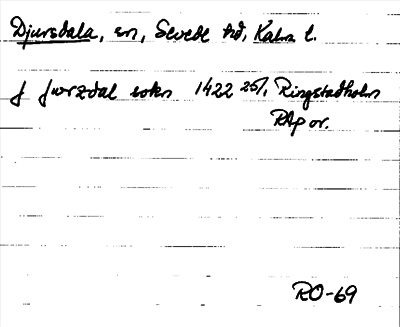 Djursdala, sn, Sevede hd, Kalm l.
J jwrzdal sokn 1422 25/1 Ringstadholm
RAp or.
RO-69